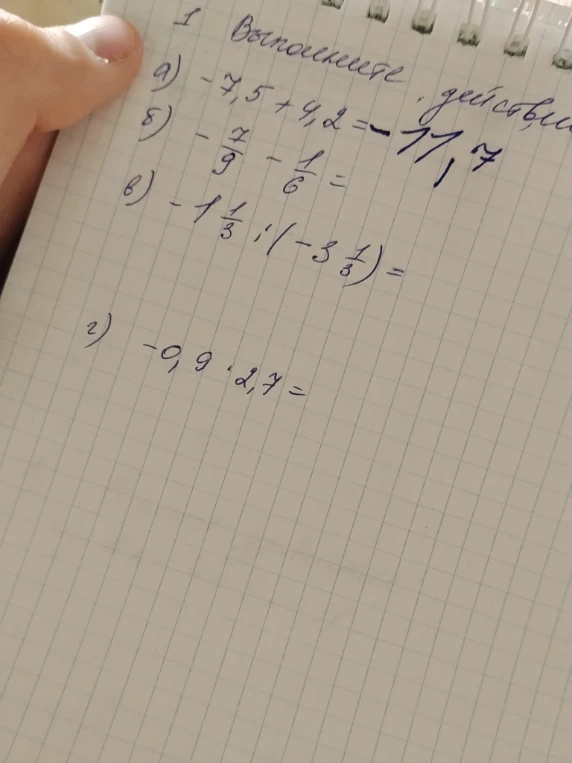 1 Выполните действи
а) -7,5 + 4,2 = -11,7
б) - 7/9 - 1/6 =
в) - 1 1/3 : (- 3 1/3) =
г) -0,9 · 2,7 =